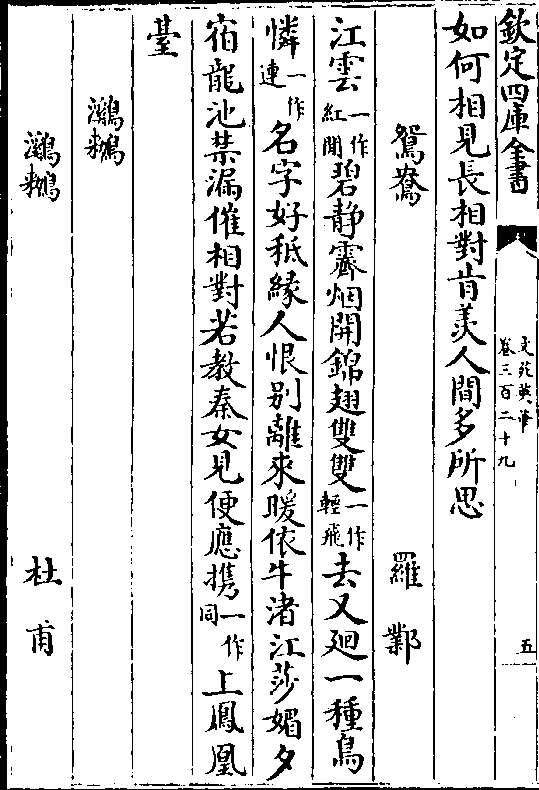 欽定四庫全書
文苑英華
卷三百二十九
五
如何相見長相對肯羨人間多所思
鴛鴦 羅鄴
江雲一作紅閒碧静霽烟開錦翅雙雙一作輕飛去又廻一種鳥
憐一作連名字好秪緣人恨别離來暖依牛渚江莎媚夕
宿龍池禁漏催相對若教秦女見便應携一作同上鳳凰
臺
鸂𪆟
鸂𪆟 杜甫